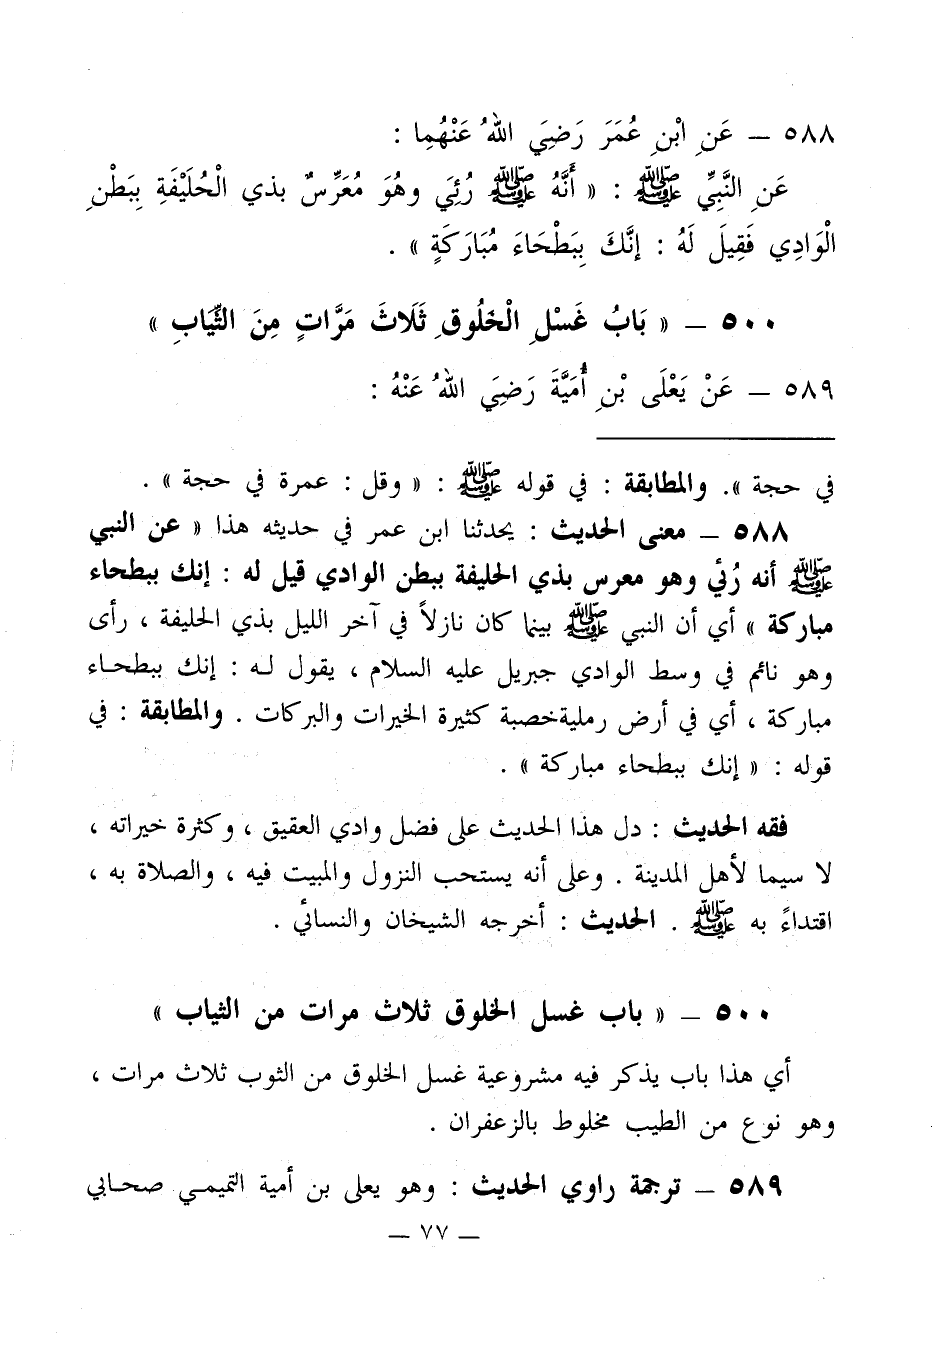 ٥٨٨ – عَنِ ابْنِ عُمَرَ رَضِيَ اللهُ عَنْهُما :
عَنِ النَّبِيِّ ﷺ : « أَنَّهُ ﷺ رُئِيَ وهُوَ مُعَرِّسٌ بذي الْحُلَيْفَةِ بِبَطْنِ
الْوَادِي فَقِيلَ لَهُ : إنَّكَ بِبَطْحَاءَ مُبَارَكَةٍ » .
٥٠٠ – « بَابُ غَسْلِ الْخَلُوقِ ثَلَاثَ مَرَّاتٍ مِنَ الثِّيَابِ »
٥٨٩ – عَنْ يَعْلَى بْنِ أُمَيَّةَ رَضِيَ اللهُ عَنْهُ :
في حجة ». والمطابقة : في قوله ﷺ : « وقل : عمرة في حجة » .
٥٨٨ – معنى الحديث : يحدثنا ابن عمر في حديثه هذا « عن النبي
ﷺ أنه رُئي وهو معرس بذي الحليفة ببطن الوادي قيل له : إنك ببطحاء
مباركة » أي أن النبي ﷺ بينما كان نازلاً في آخر الليل بذي الحليفة ، رأى
وهو نائم في وسط الوادي جبريل عليه السلام ، يقول لـه : إنك ببطحـاء
مباركة ، أي في أرض رملية خصبة كثيرة الخيرات والبركات . والمطابقة : في
قوله : « إنك ببطحاء مباركة » .
فقه الحديث : دل هذا الحديث على فضل وادي العقيق ، وكثرة خيراته ،
لا سيما لأهل المدينة . وعلى أنه يستحب النزول والمبيت فيه ، والصلاة به ،
اقتداءً به ﷺ . الحديث : أخرجه الشيخان والنسائي .
٥٠٠ – « باب غسل الخلوق ثلاث مرات من الثياب »
أي هذا باب يذكر فيه مشروعية غسل الخلوق من الثوب ثلاث مرات ،
وهو نوع من الطيب مخلوط بالزعفران .
٥٨٩ – ترجمة راوي الحديث : وهو يعلى بن أمية التميمـي صحـابي
– ٧٧ –